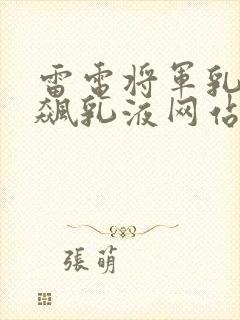 雷電将軍乳
飆乳液网佔
張萌